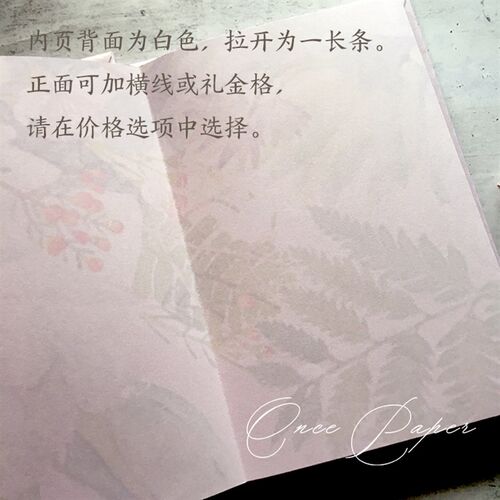 内页背面为白色，拉开为一长条。
正面可加横线或礼金格，
请在价格选项中选择。
Once Paper